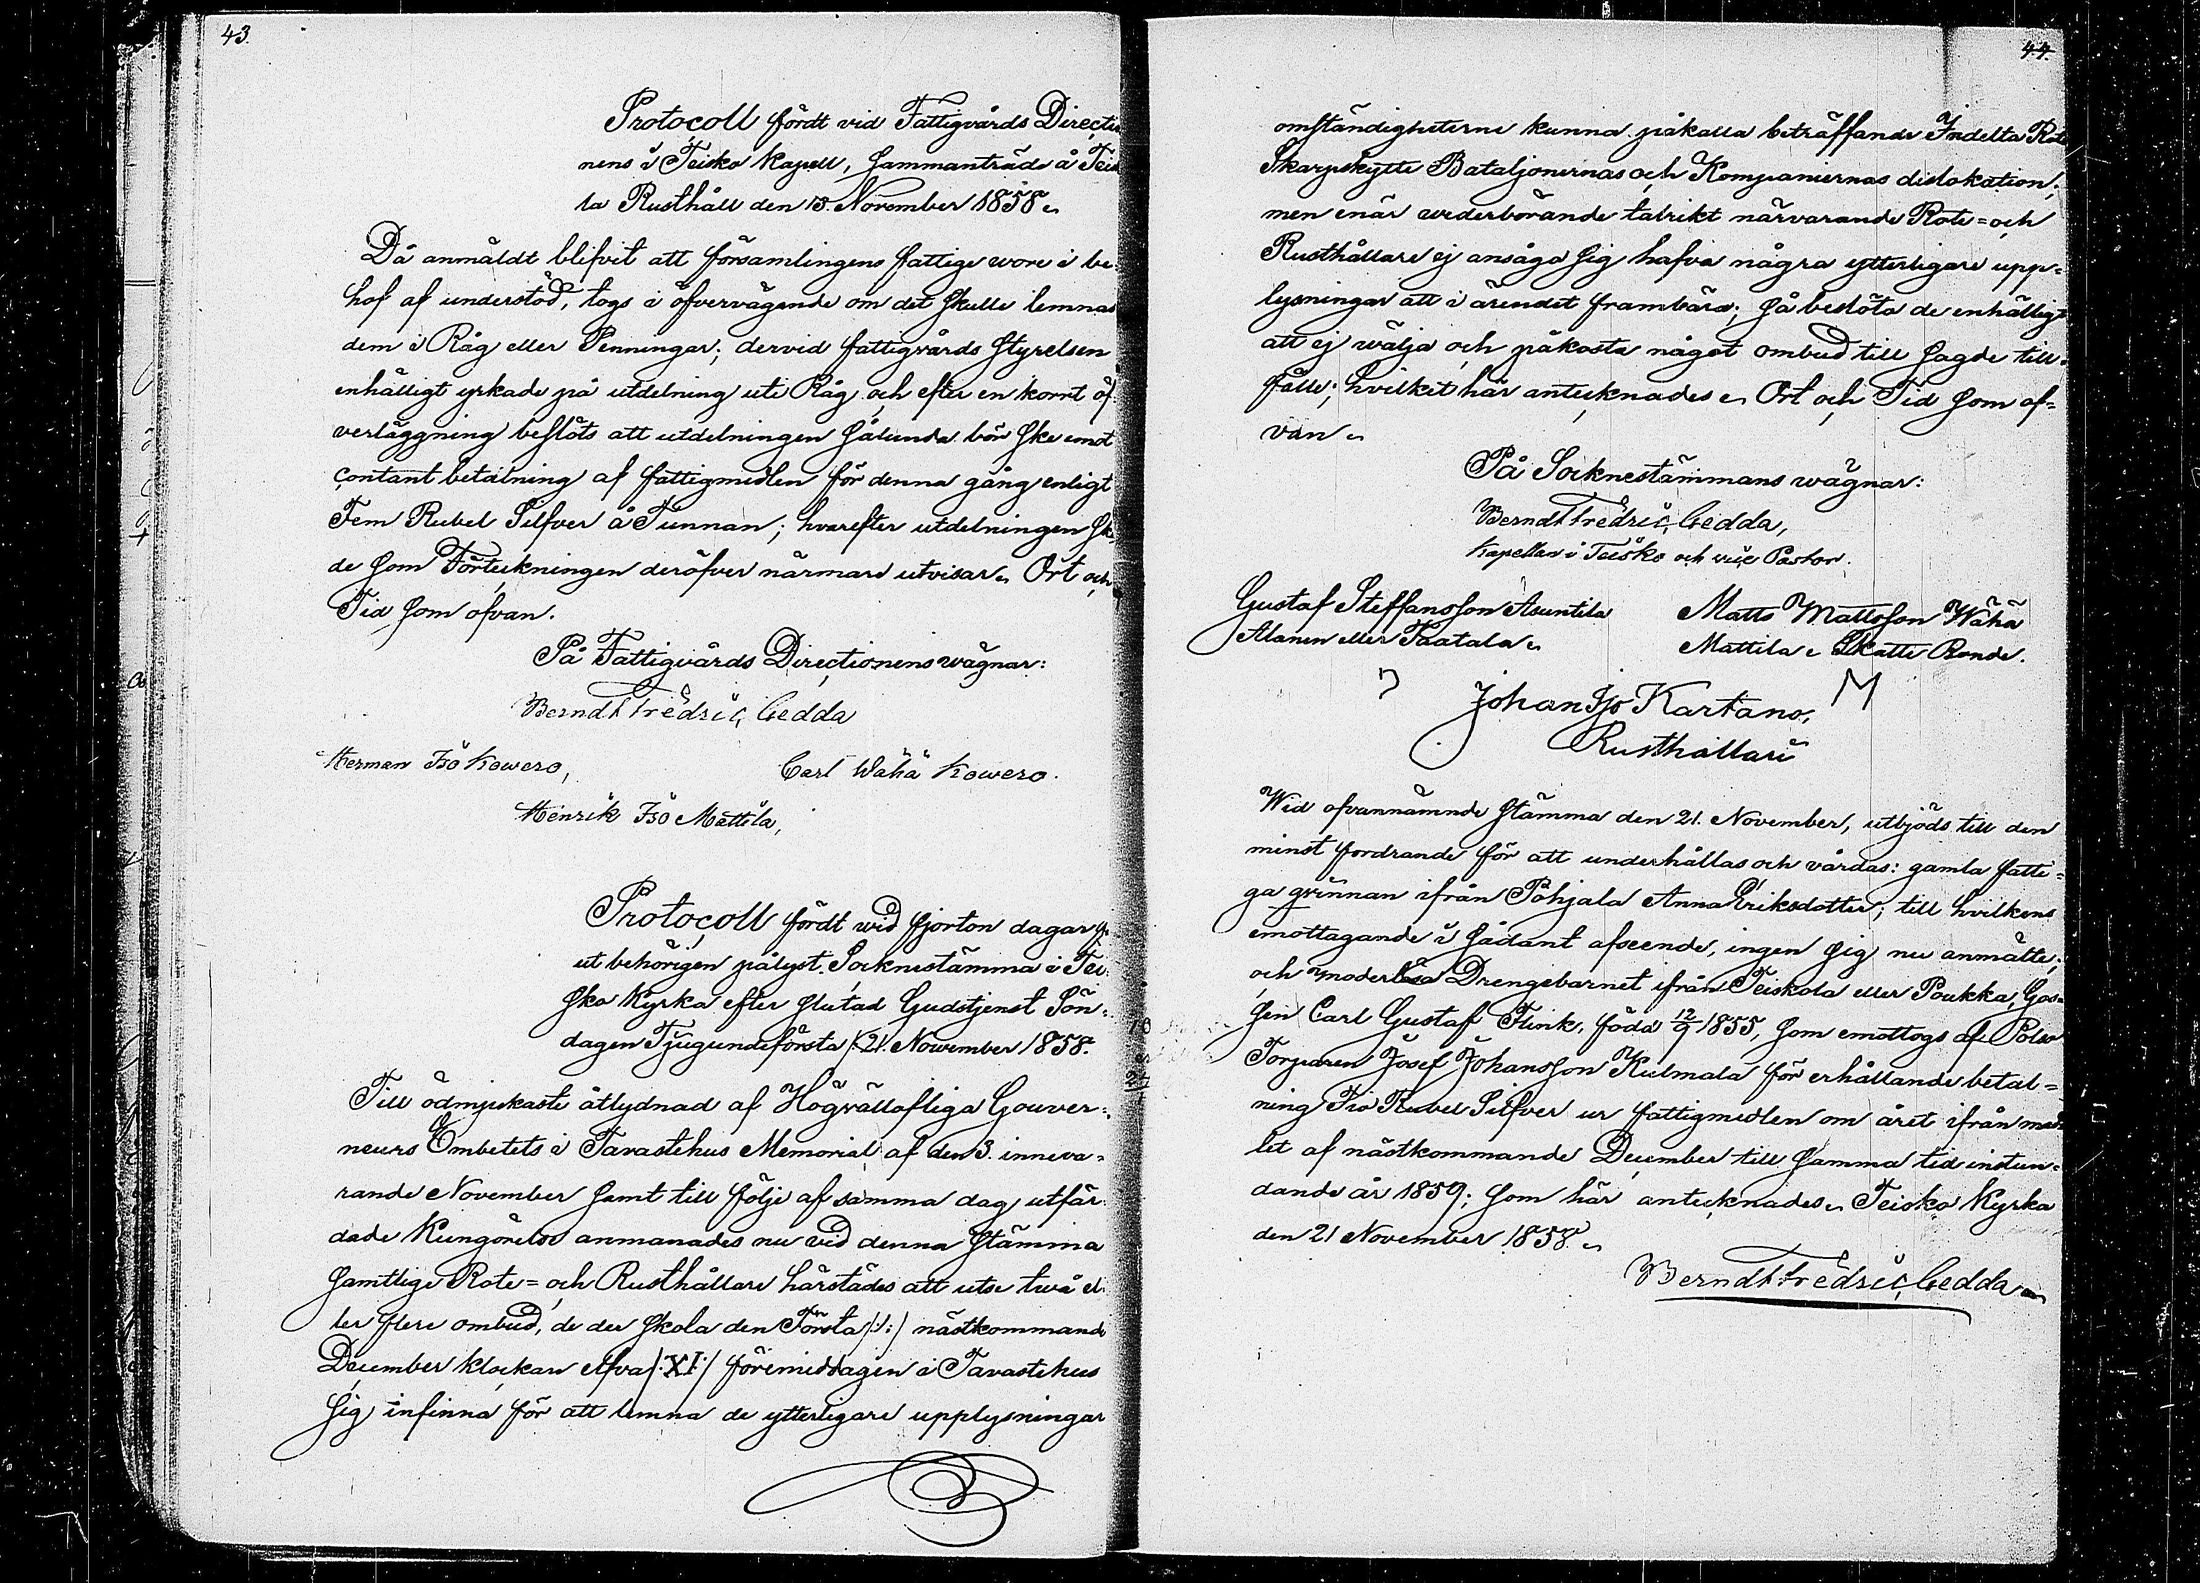 43.
Protocoll fördt vid Fattigvårds Directio
nens i Teisko Kapell, sammanträde å Teis
la Rusthåll den 13. November 1858.
Då anmäldt blifvit att församlingens fattige wore i be-
hof af understöd, togs i öfvervägande om det skulle lemnas
dem i Råg eller Penningar; dervid fattigvårds styrelsen
enhälligt yrkade på utdelning uti Råg och efter en kort öf-
verläggning beslöts att utdelningen sålunda bör ske emot
contant betalning af fattigmedlen för denna gång enligt
Fem Rubel Silfver å Tunnan; hvarefter utdelningen ske-
de som Förteckningen deröfver närmare utvisar. Ort och
Tid som ofvan.
På Fattigvårds Directionens wägnar:
Berndt Fredric Gedda
Herman Iso Kowero,
Carl Wähä Kowero.
Henrik Iso Mattila,
Protocoll fördt wid fjorton dagar för-
ut behörigen pålyst Socknestämma i Tei-
sko Kyrka efter slutad Gudstjenst Sön-
dagen Tjugundeförsta /:21. November 1858.
Till ödmjukaste åtlydnad af Högvällofliga Gouver-
neurs Embetets i Tavastehus Memorial af den 3. inneva-
rande November samt till följe af samma dag utfär-
dade Kungörelse anmanades nu vid denna stämma
samtlige Rote= och Rusthållare härstädes att utse twå el-
ler flere ombud, de der skola den Första /:1:/ nästkommande
December klockan elfva /:XI:/ föremiddagen i Tavastehus
sig infinna för att lemna de ytterligare upplysningar
44.
omständigheterne kunna påkalla beträffande Indelta Rote
Skarpskytte Bataljonernas och Kompaniernas dislokation;
men enär wederbörande talrikt närvarande Rote= och
Rusthållare ej ansågo sig hafva några ytterligare upp=
lysningar att i ärendet frambära; så beslöto de enhälligt
att ej wälja och påkosta något ombud till sagde till-
fälle; hvilket här antecknades. Ort och Tid som of=
van.
På Socknestämmans wägnar:
Berndt Fredric Gedda,
Kapellan i Teisko och vice Pastor.
Gustaf Steffansson Asuntila
Matts Mattsson Wähä
Alanen eller Taatala.
Mattila. Skatte Bonde.
Johan Iso Kartano,
Rusthållare
Wid ofvannämnde stämma den 21. November, utbjöds till den
minst fordrande för att underhållas och vårdas: gamla fatti=
ga qvinnan ifrån Pohjala Anna Eriksdotter; till hvilkens
emottagande i sådant afseende, ingen sig nu anmälte;
och moderlösa Drengebarnet ifrån Teiskola eller Poukka, Gos-
sen Carl Gustaf Flink, född 12/9 1855, som emottogs af Polso
Torparen Josef Johansson Kulmala för erhållande betal=
ning Tio Rubel Silfver ur fattigmedlen om året ifrån med
let af nästkommande December till samma tid instun=
dande år 1859; som här antecknades. Teisko Kyrka
den 21 November 1858.
Berndt Fredric Gedda